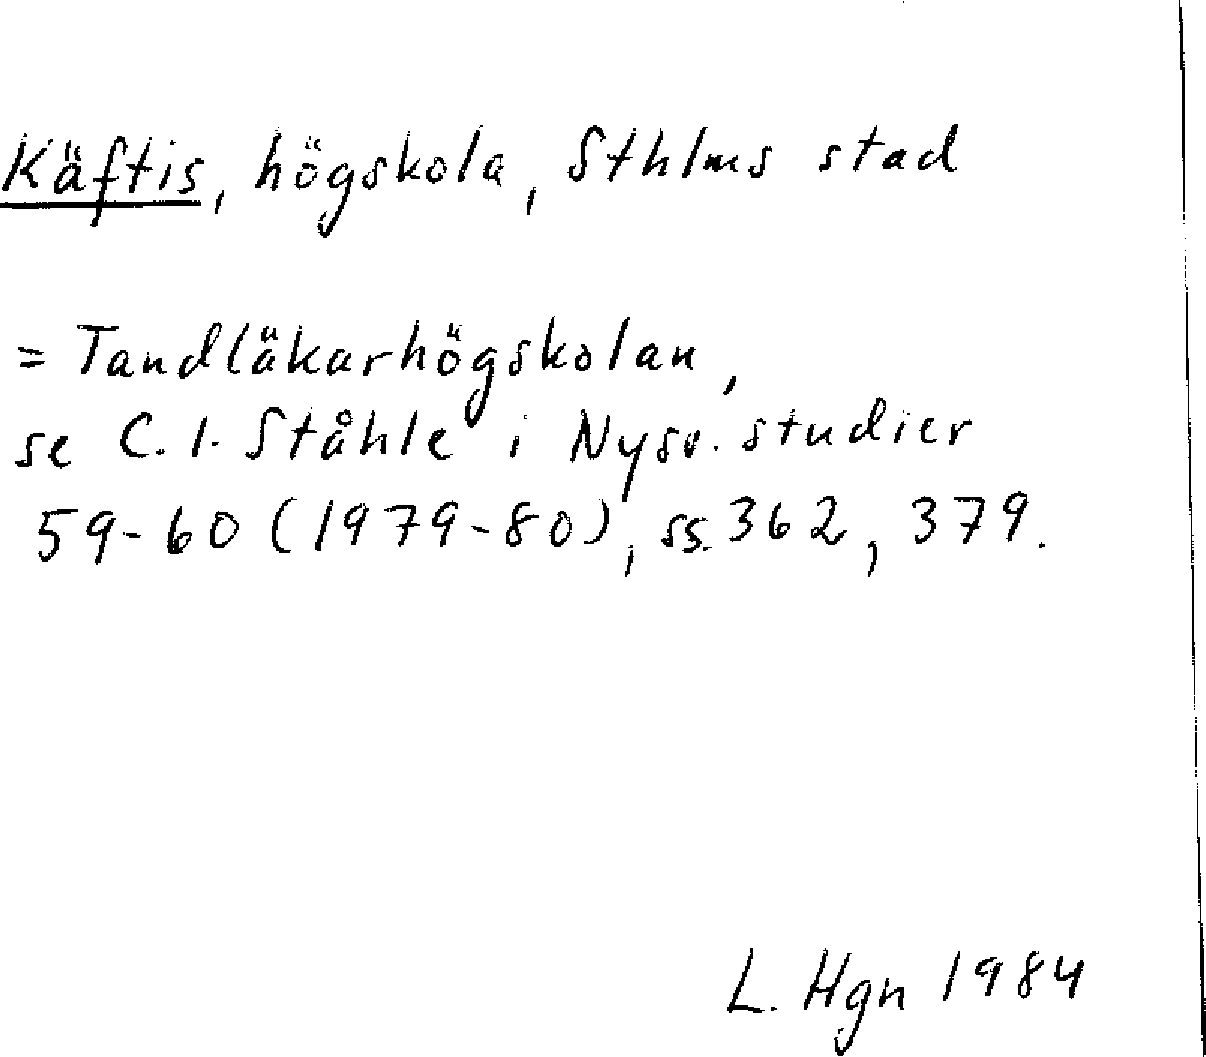 Käftis, högskola, Sthlms stad
= Tandläkarhögskolan,
se C. I. Ståhle i Nysv. studier
59-60 (1979-80), ss. 362, 379.
L. Hgn 1984